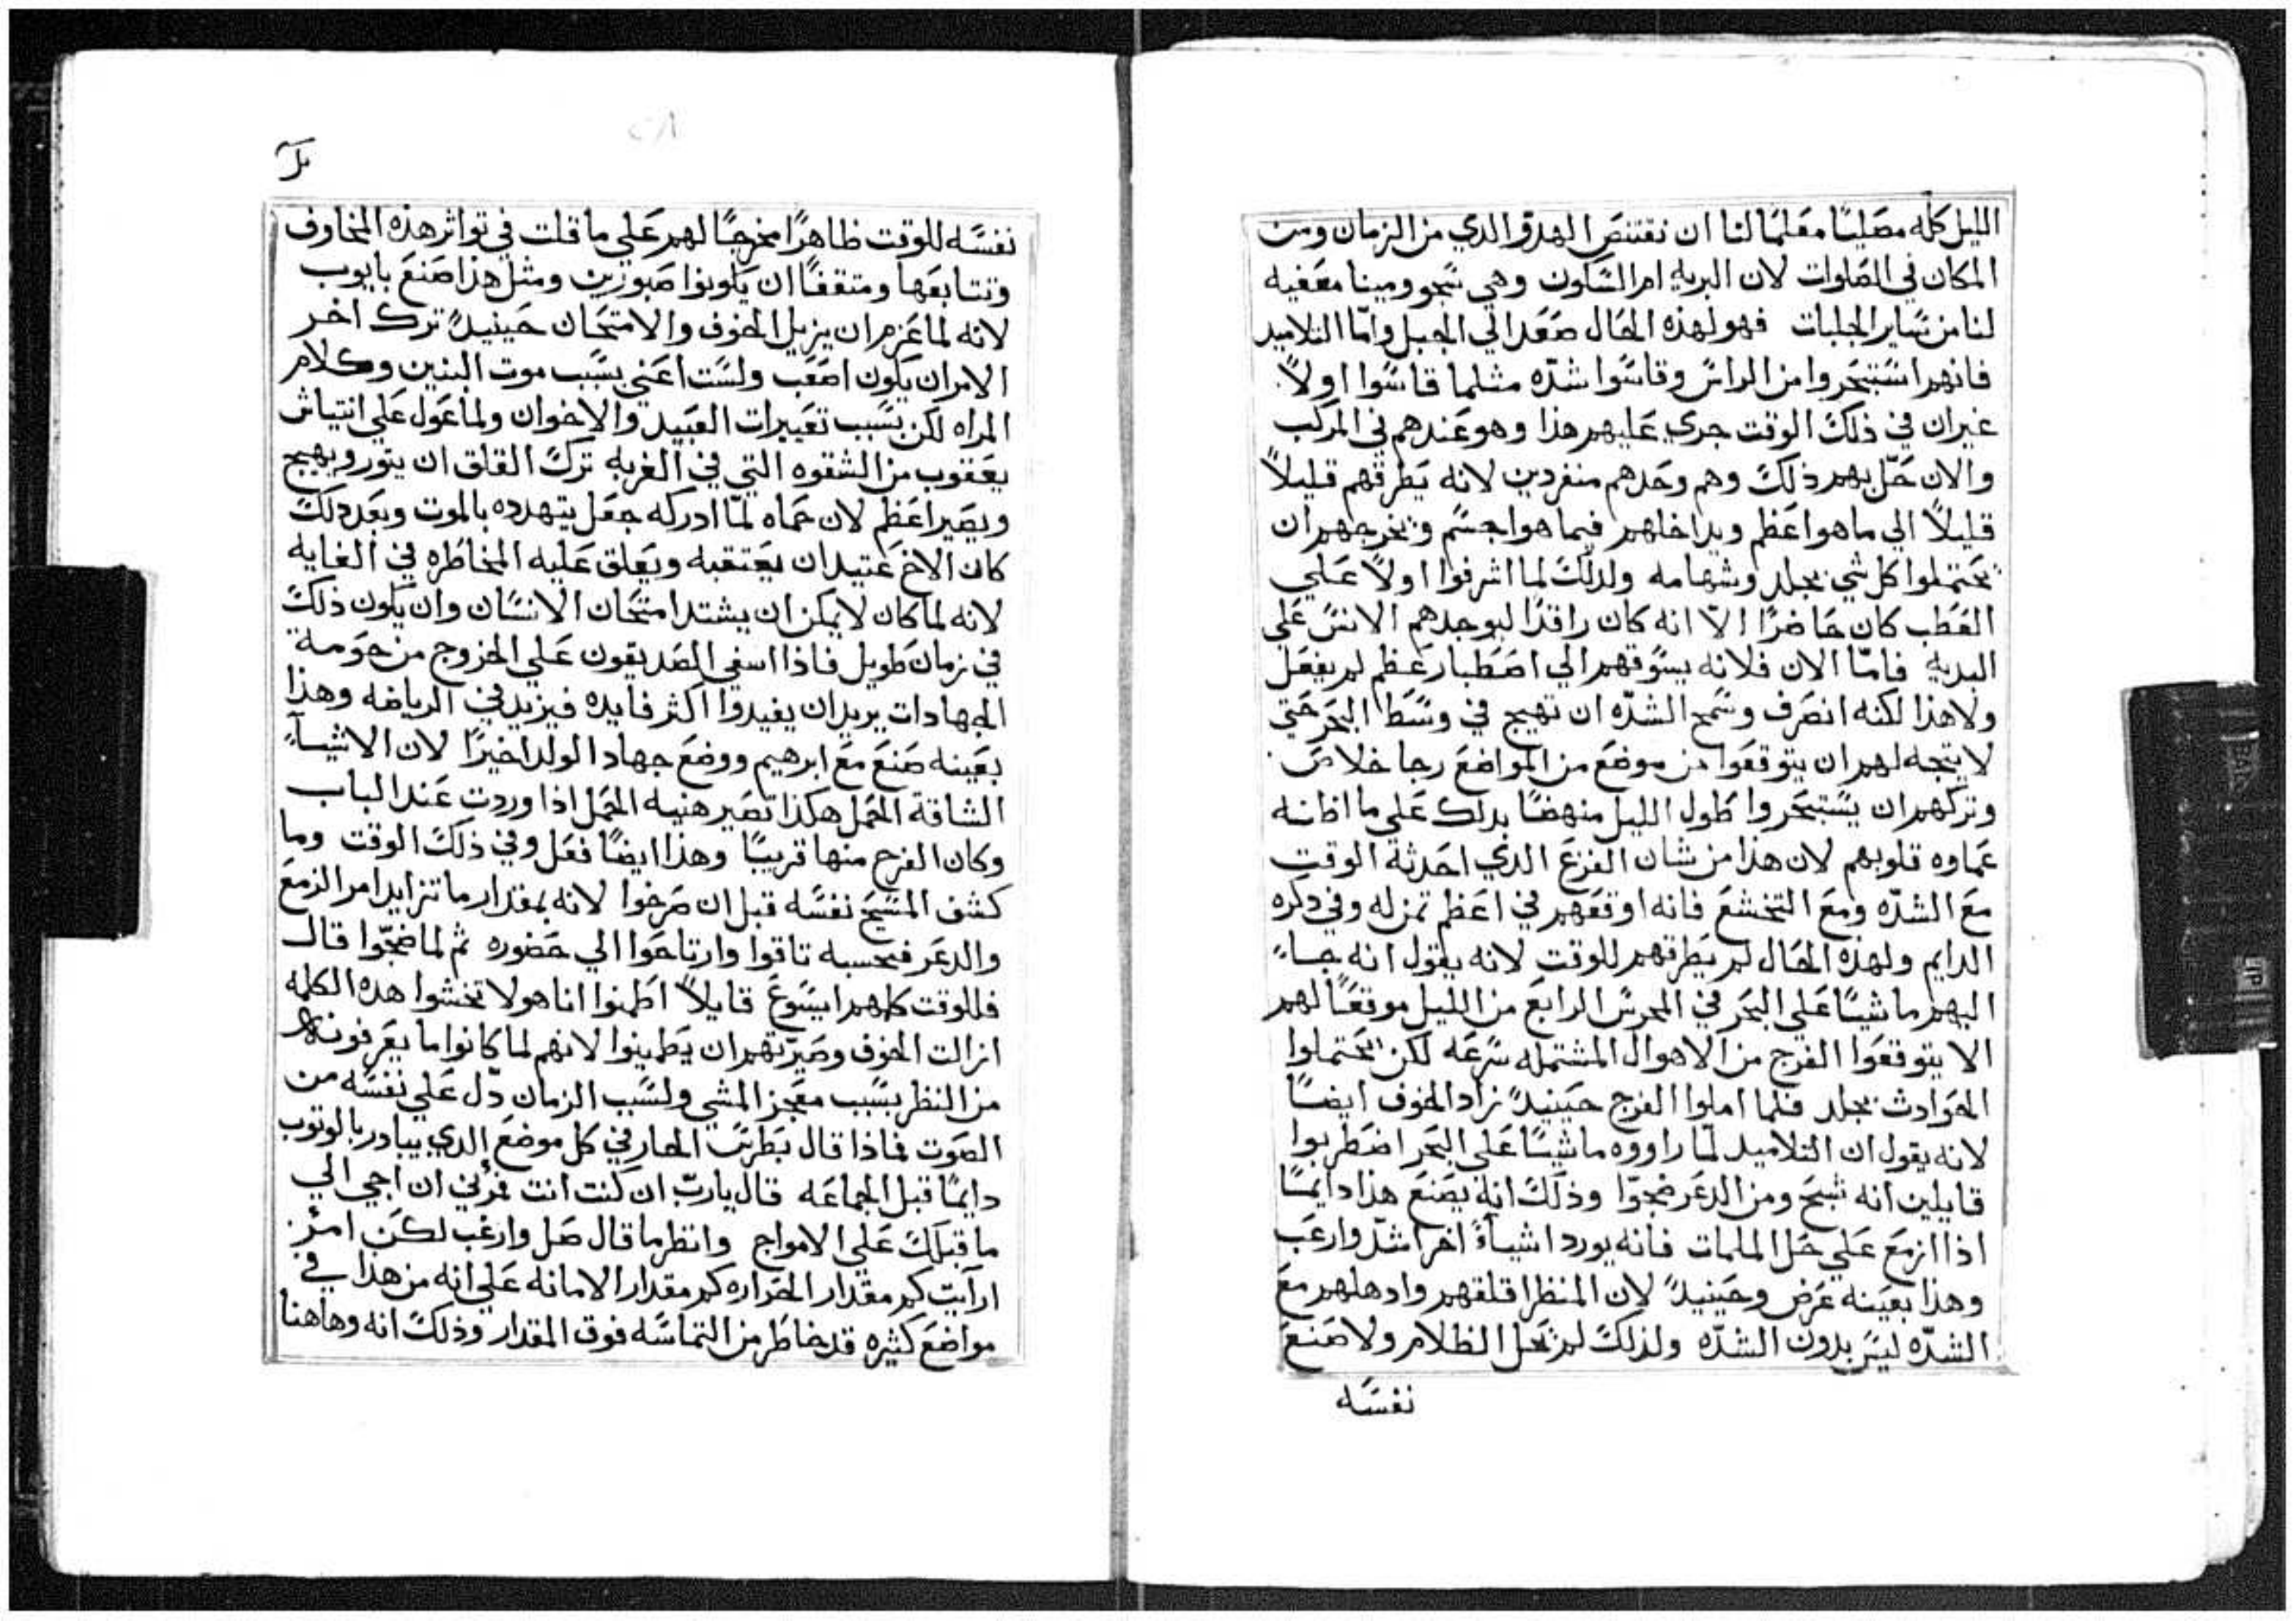 الليل كله مصليًا معلمًا لنا ان نقتنص الهدو الذي من الزمان ومن
المكان في الصلوات لان البريه ام السكون وهي شجو ومينا معفيه
لنا من ساير الجلبات فهو لهذه الحال صعد الي الجبل وامّا التلاميد
فانهم استبحروا من الراس وقاسوا شدّه مثلما قاسوا اولاً
غير ان في ذلك الوقت جري عليهم هذا وهو عندهم في المركب
والان حلّ بهم ذلك وهم وحدهم منفردين لانه يطرقهم قليلاً
قليلاً الي ما هو اعظم ويداخلهم فيما هو اجسم ويخرجهم ان
يحتملوا كل شي بجلد وشهامه ولذلك لما اشرفوا اولاً علي
العطب كان حاضرًا الاّ انه كان راقدًا ليوجدهم الانس علي
البديه فامّا الان فلانه يسوقهم الي اصطبار عظم لم يفعل
ولا هذا لكنه انصرف وسمح الشدّه ان تهيج في وسط البحر حتي
لا يتجه لهم ان يتوقعوا من موضع من المواضع رجا خلاص
وتركهم ان يستبحروا طول الليل منهضًا بدلك علي ما اظانه
عماوه قلوبهم لان هذا من شان الفزع الذي احدثة الوقت
مع الشدّه ومع التخشع فانه اوقعهم في اعظم تمزله وفي دكره
الدايم ولهذه الحال لم يطرقهم للوقت لانه يقول انه جاء
اليهم ماشيًا علي البحر في المحرس الرابع من الليل موقعًا لهم
الا يتوقعوا الفرج من الاهوال المشتمله سرعه لكن يحتملوا
الحوادث بجلد فلما املوا الفرج حينيدٍ زاد الخوف ايضًا
لانه يقول ان التلاميد لمّا راووه ماشيًا علي البحر اضطربوا
قايلين انه شبح ومن الدعر ضجوّا وذلك انة يصنع هذا دايمًا
اذا ازمع علي حل الملمات فانه يورد اشيآءً اخر اشدّ وارعب
وهذا بعينه عرض وحينيدٍ لان المنظر اقلقهم وادهلهم مع
الشدّه ليس بدون الشدّه ولذلك لم يحل الظلام ولا صنع
نفسه
نفسه للوقت ظاهرًا مخرجًا لهم علي ما قلت في تواثر هذه المخاوف
وتتابعها ومتقفًا ان يكونوا صبورين ومثل هذا صنع بايوب
لانه لما عزم ان يزيل الخوف والامتحان حينيدٍ ترك اخر
الامر ان يكون اصعب ولست اعني بسبب موت البنين وكلام
المراه لكن بسبب تعييرات العبيد والاخوان ولما عول علي انتياش
يعقوب من الشقوه التي في الغربه ترك القلق ان يتور ويهيج
ويصير اعظم لان حماه لمّا ادركه جعل يتهدده بالموت وبعد دلك
كان الاخ عتيد ان يعتقبه ويعلق عليه المخاطره في الغايه
لانه لما كان لا يمكن ان يشتد امتحان الانسان وان يكون ذلك
في زمان طويل فاذا اسفي الصديقون علي الخروج من حومة
الجهادات يريد ان يفيدوا اكثر فايده فيزيد في الرياضه وهذا
بعينه صنع مع ابرهيم ووضع جهاد الولد اخيرًا لان الاشيآء
الشاقة الحمل هكذا تصير هنيه الحمل اذا وردت عند الباب
وكان الفرج منها قريبًا وهذا ايضًا فعل وفي ذلك الوقت وما
كشف المسيح نفسه قبل ان صرخوا لانه بمقدار ما تزايد امر الزمع
والدعر فبحسبه تاقوا وارتاحوا الي حضوره ثم لما ضجّوا قال
فللوقت كلمهم ايسوع قايلاً اطمنوا انا هو لا تخشوا هده الكلمه
ازالت الخوف وصيرتهم ان يطمينوا لانهم لما كانوا ما يعرفونه
من النظر بسبب معجز المشي ولسبب الزمان دّل علي نفسه من
الصوت فماذا قال بطرس الحار في كل موضع الدي يبادر بالوتوب
دايمًا قبل الجماعه قال يا ربّ ان كنت انت فمرني ان اجي الي
ما قبلك علي الامواج وانظر ما قال صل وارغب لكن امر
ارآيت كم مقدار الحراره كم مقدار الامانه علي انه من هذا في
مواضع كثيره قد خاطر من التماسه فوق المقدار وذلك انه وهاهنا